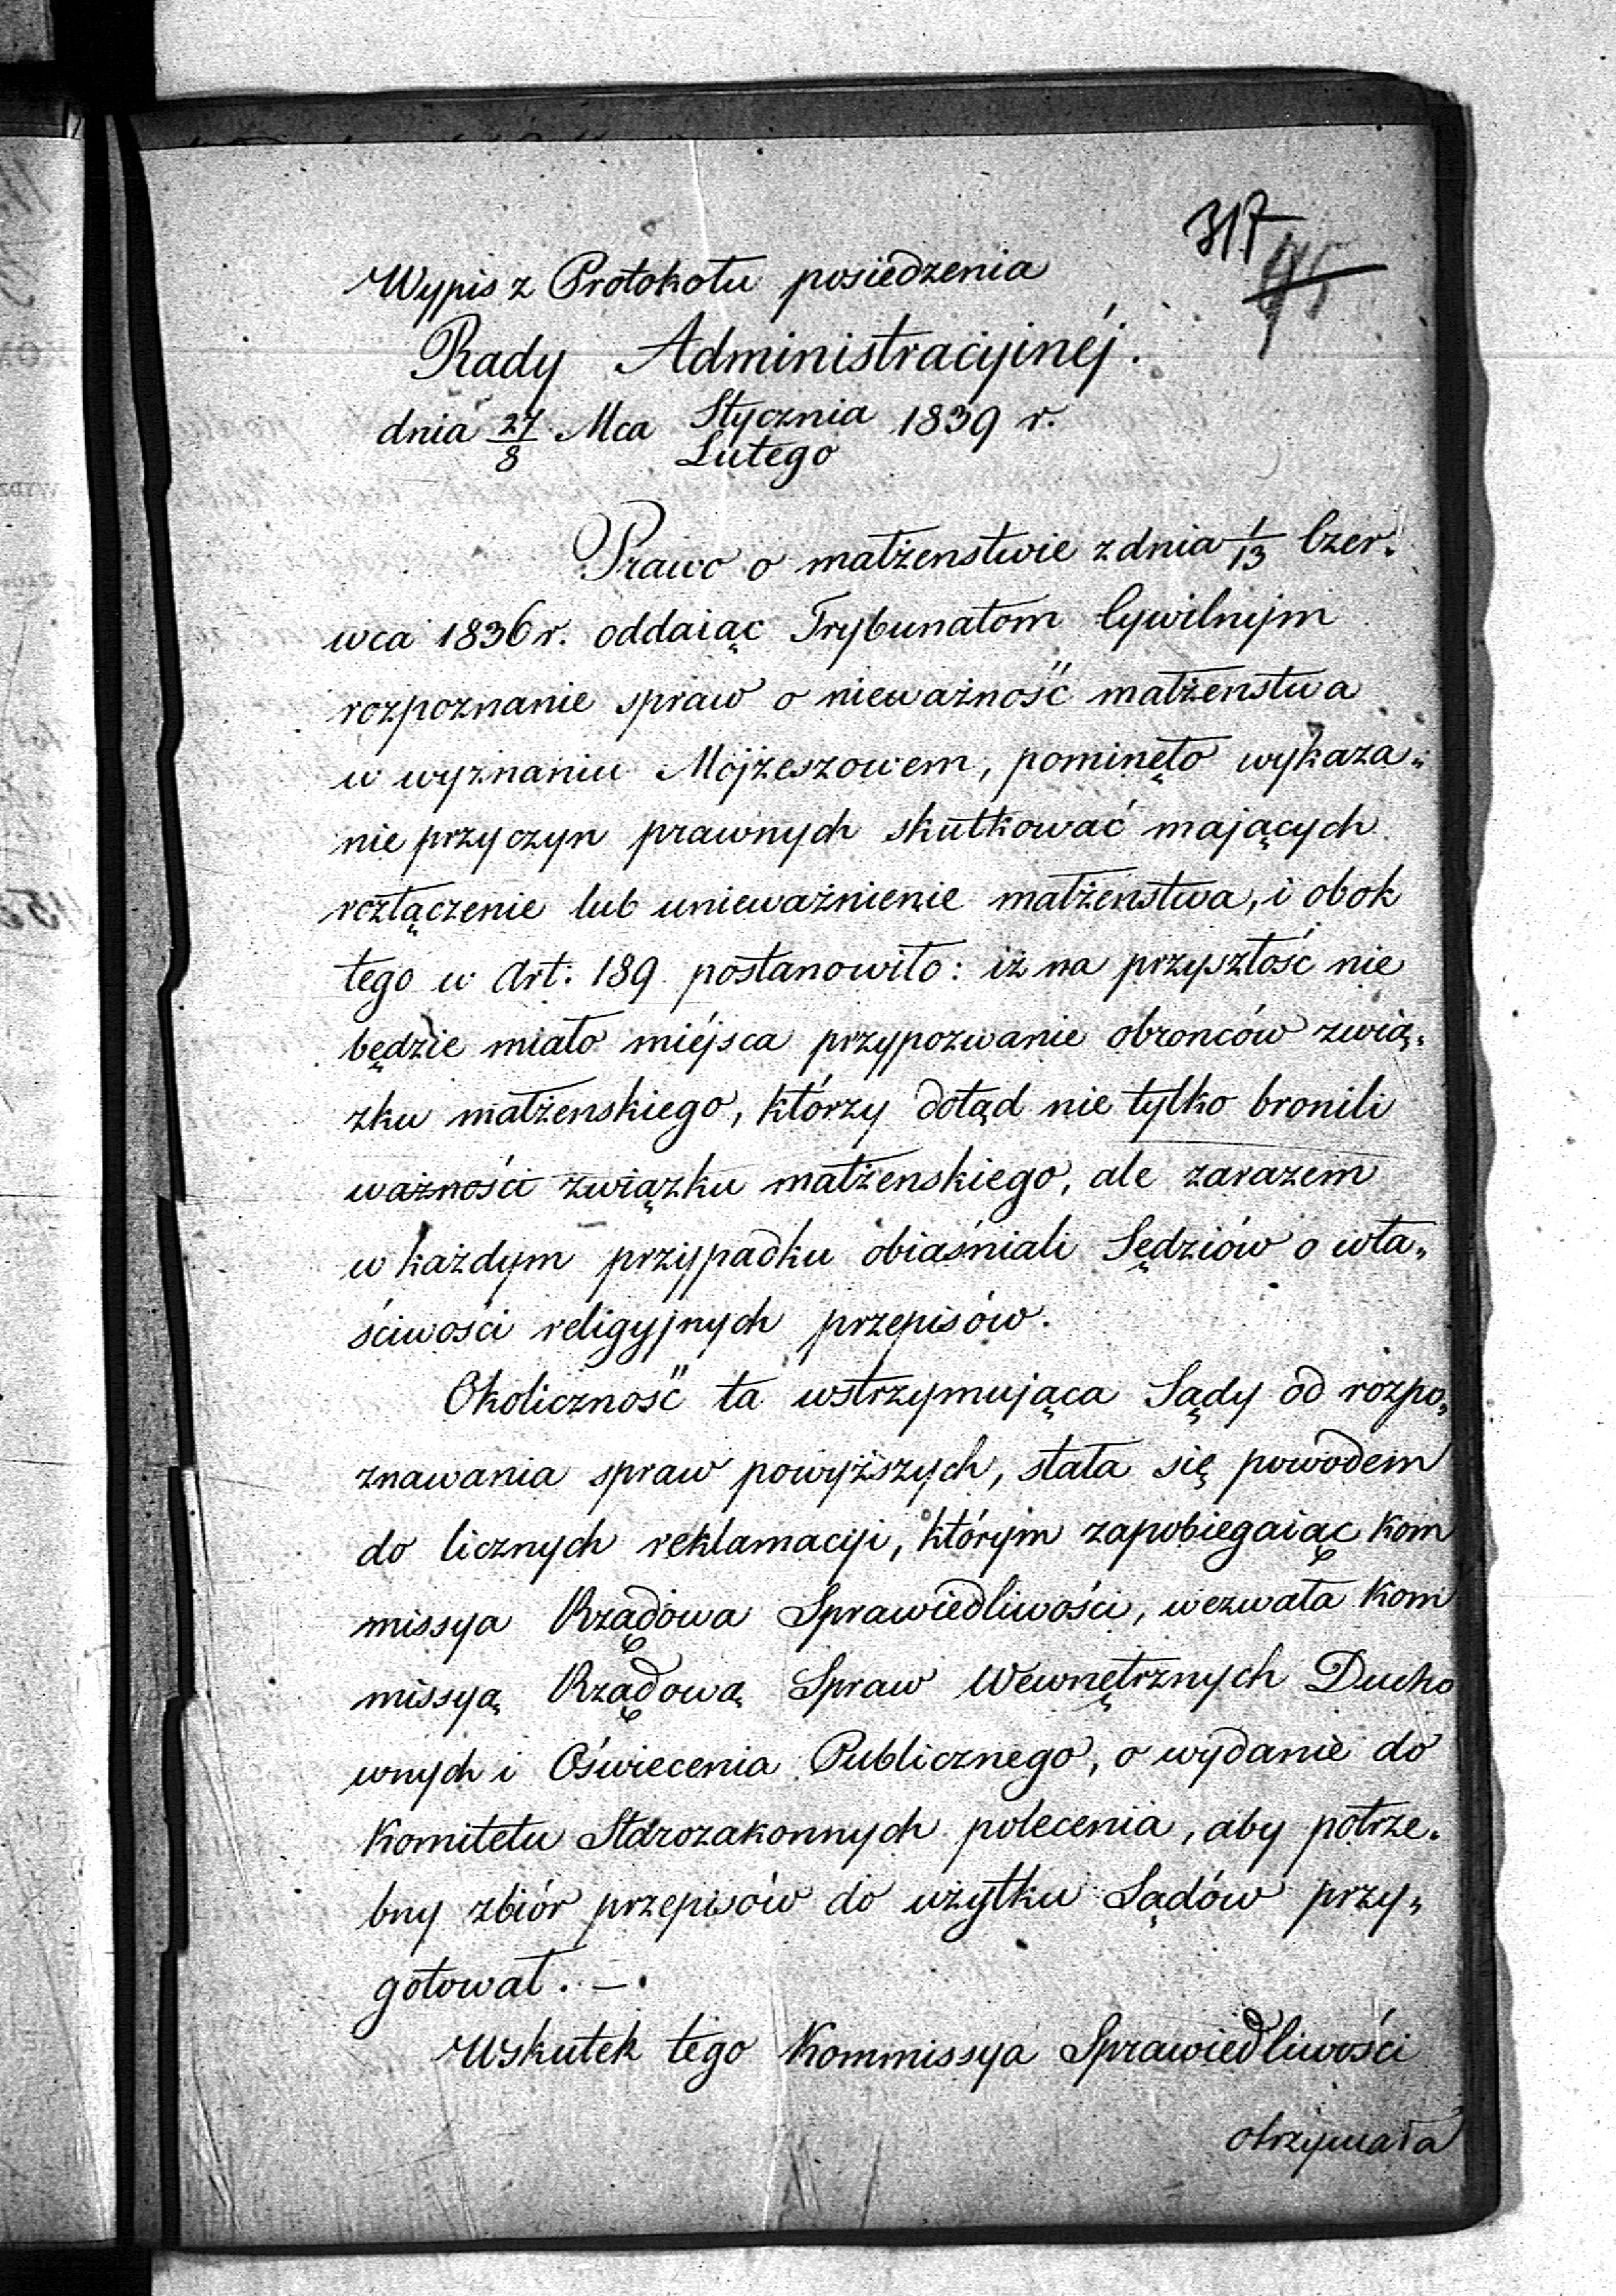 317
95
Wypis z Protokołu posiedzenia
Rady Administracyjnéj.
dnia 27/8 Mca Stycznia/Lutego 1839 r.
Prawo o małżenstwie z dnia 1/13 Czer„
wca 1836 r. oddaiąc Trybunałom Cywilnym
rozpoznanie spraw o nieważność małżenstwa
w wyznaniu Mojżeszowem, pominęło wykaza„
nie przyczyn prawnych skutkować mających
rozłączenie lub unieważnienie małżeństwa, i obok
tego w Art: 189 postanowiło: iż na przyszłość nie
będzie miało miéjsca przypozwanie obronców zwią„
zku małżenskiego, którzy dotąd nie tylko bronili
ważności związku małżenskiego, ale zarazem
w każdym przypadku obiaśniali Sędziów o wła„
ściwości religyjnych przepisów.
Okoliczność ta wstrzymująca Sądy od rozpo„
znawania spraw powyższych, stała się powodem
do licznych reklamacyi, którym zapobiegaiąc Kom
missya Rządowa Sprawiedliwości, wezwała Kom
missyą Rządową Spraw Wewnętrznych Ducho
wnych i Oświecenia Publicznego, o wydanie do
Komitetu Starozakonnych polecenia, aby potrze„
bny zbiór przepisów do użytku Sądów przy„
gotował. —.
Wskutek tego Kommissya Sprawiedliwości
otrzymała